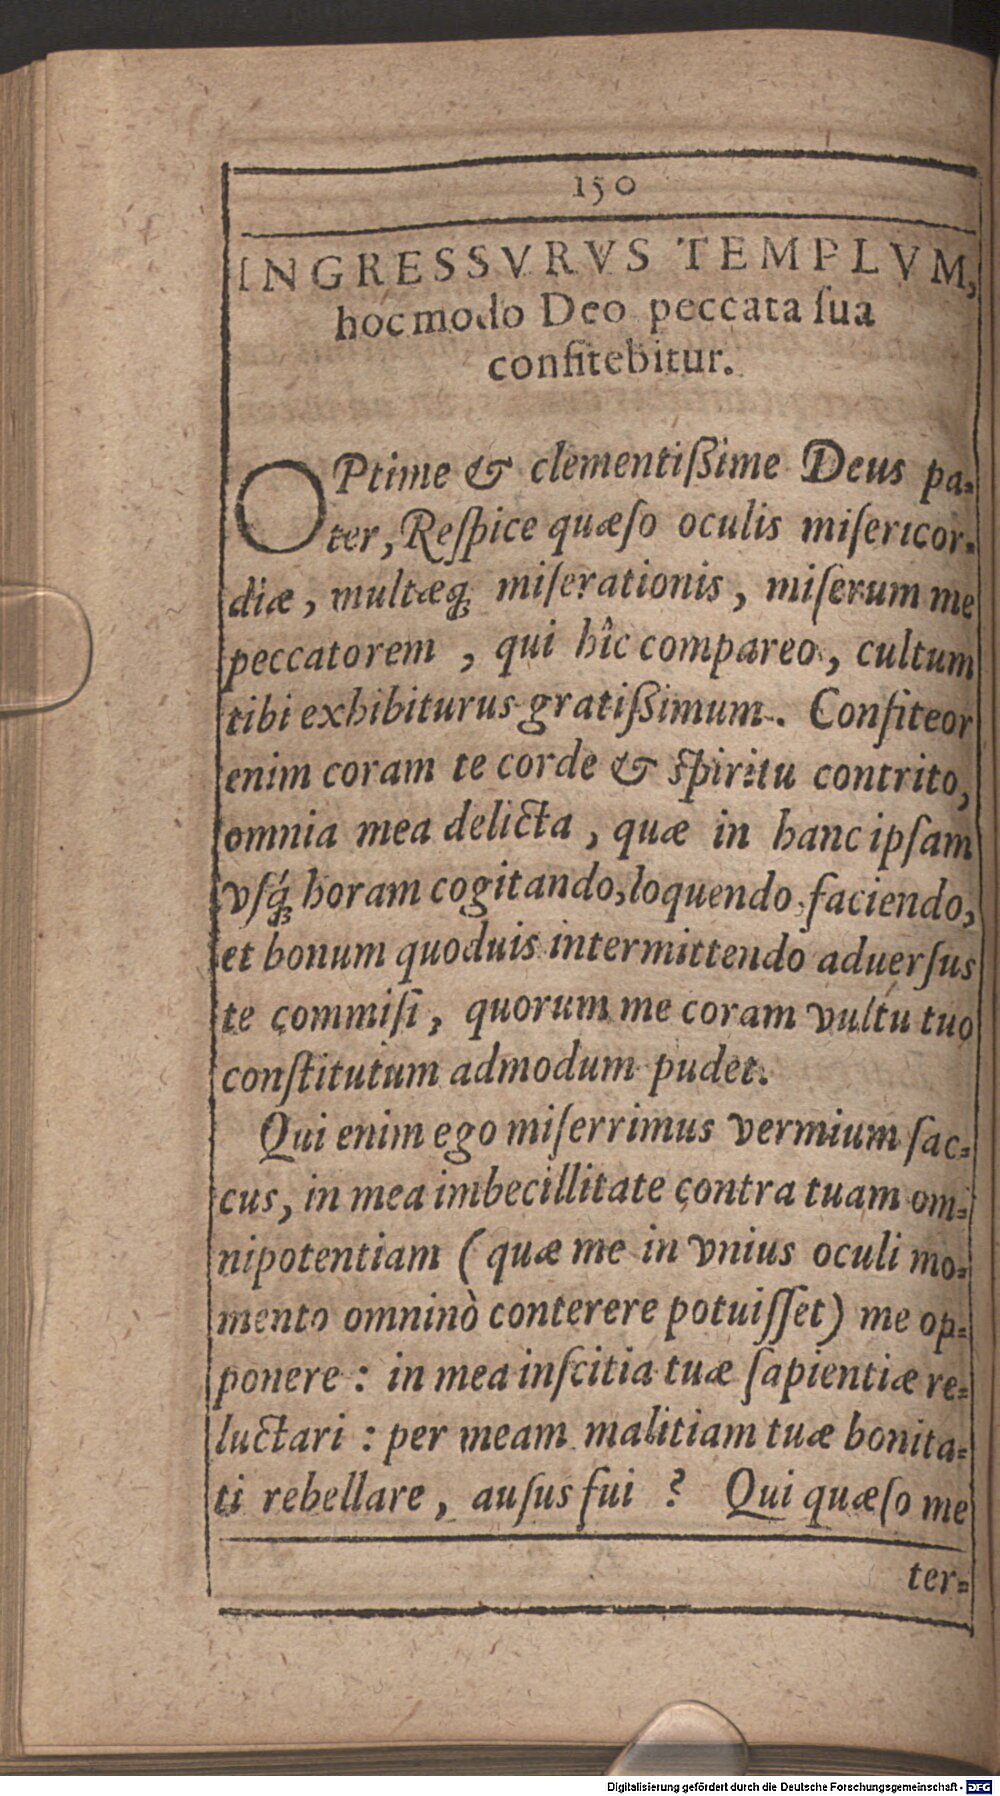 150
INGRESSVRVS TEMPLVM,
hoc modo Deo peccata ſua
confitebitur.
OPtime & clementiſſime Deus pa-
ter, Reſpice quæſo oculis miſericor-
diæ, multæq́ꝫ miſerationis, miſerum me
peccatorem, qui hîc compareo, cultum
tibi exhibiturus gratiſſimum. Confiteor
enim coram te corde & ſpiritu contrito,
omnia mea delicta, quæ in hanc ipſam
vſq́ꝫ horam cogitando, loquendo, faciendo,
et bonum quoduis intermittendo aduerſus
te commiſi, quorum me coram vultu tuo
conſtitutum admodum pudet.
Qui enim ego miſerrimus vermium ſac-
cus, in mea imbecillitate contra tuam om-
nipotentiam (quæ me in vnius oculi mo-
mento omninò conterere potuiſſet) me op-
ponere: in mea inſcitia tuæ ſapientiæ re-
luctari: per meam malitiam tuæ bonita-
ti rebellare, auſus fui? Qui quæſo me
ter-
Digitalisierung gefördert durch die Deutsche Forschungsgemeinschaft - DFG